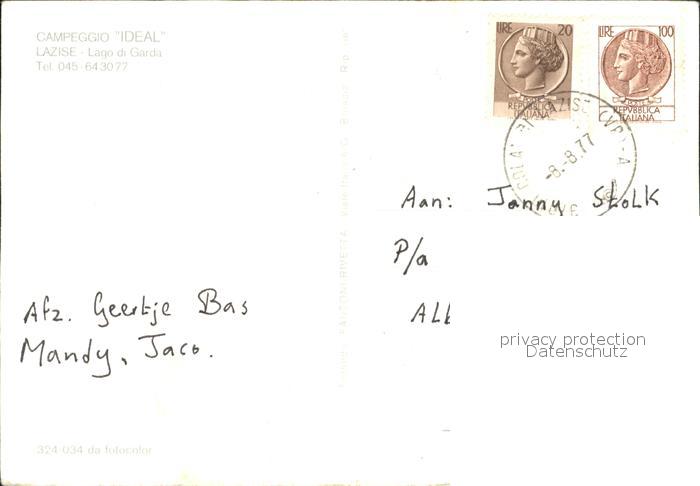 CAMPEGGIO "IDEAL"
LAZISE - Lago di Garda
Tel. 045-643077
LIRE 20
REPVBBLICA
ITALIANA
LIRE 100
REPVBBLICA
ITALIANA
-8.-8.77
Aan: Janny Stolk
P/a
Afz. Geertje Bas
Mandy, Jaco.
privacy protection
Datenschutz
324-034 da fotocolor